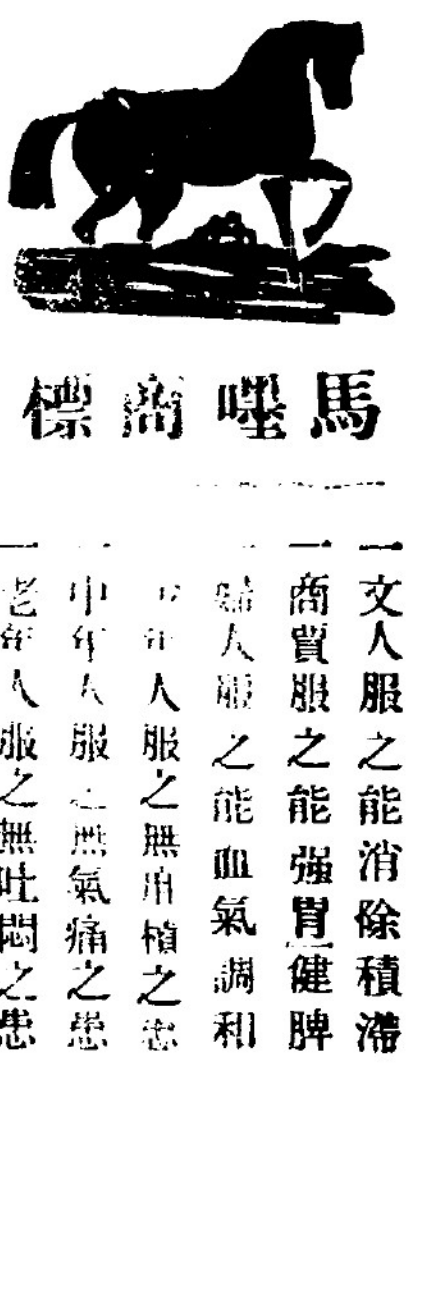 馬嚜商標
一文人服之能消除積滯
一商賈服之能强胃健脾
一婦人服之能血氣調和
年人服之無之患
一中年人服之無氣痛之患
一老年人服之無吐悶之患